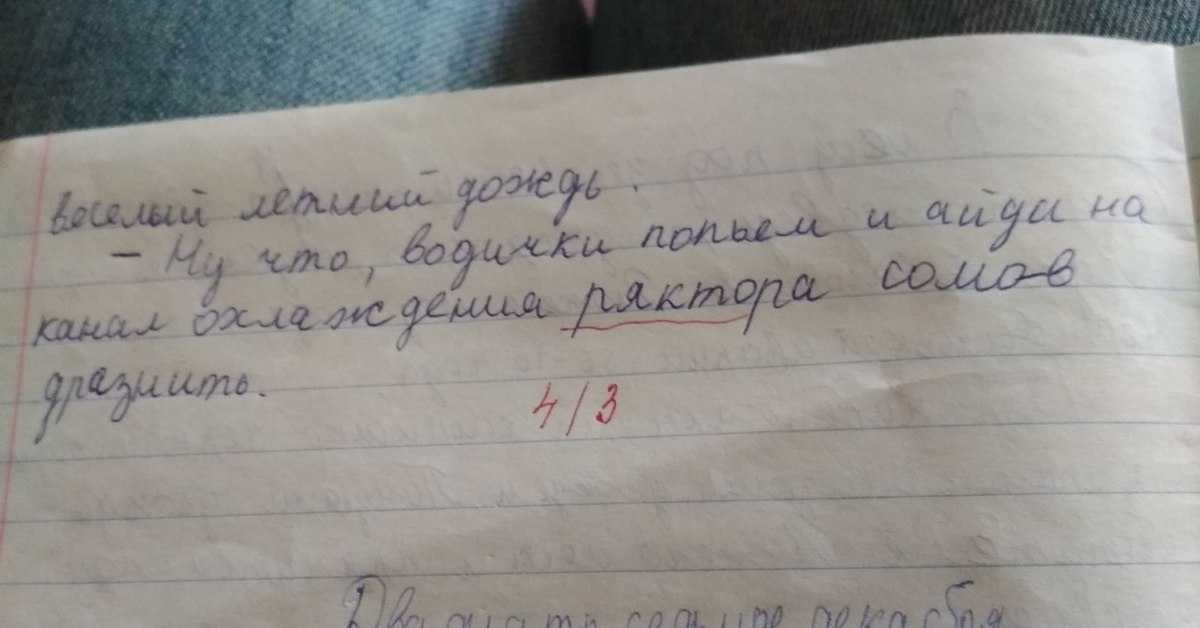 веселый летний дождь.
– Ну что, водички попьем и айда на
канал охлаждения ряктора сомов
дразнить.
4/3
Двадцать седьмое декабря